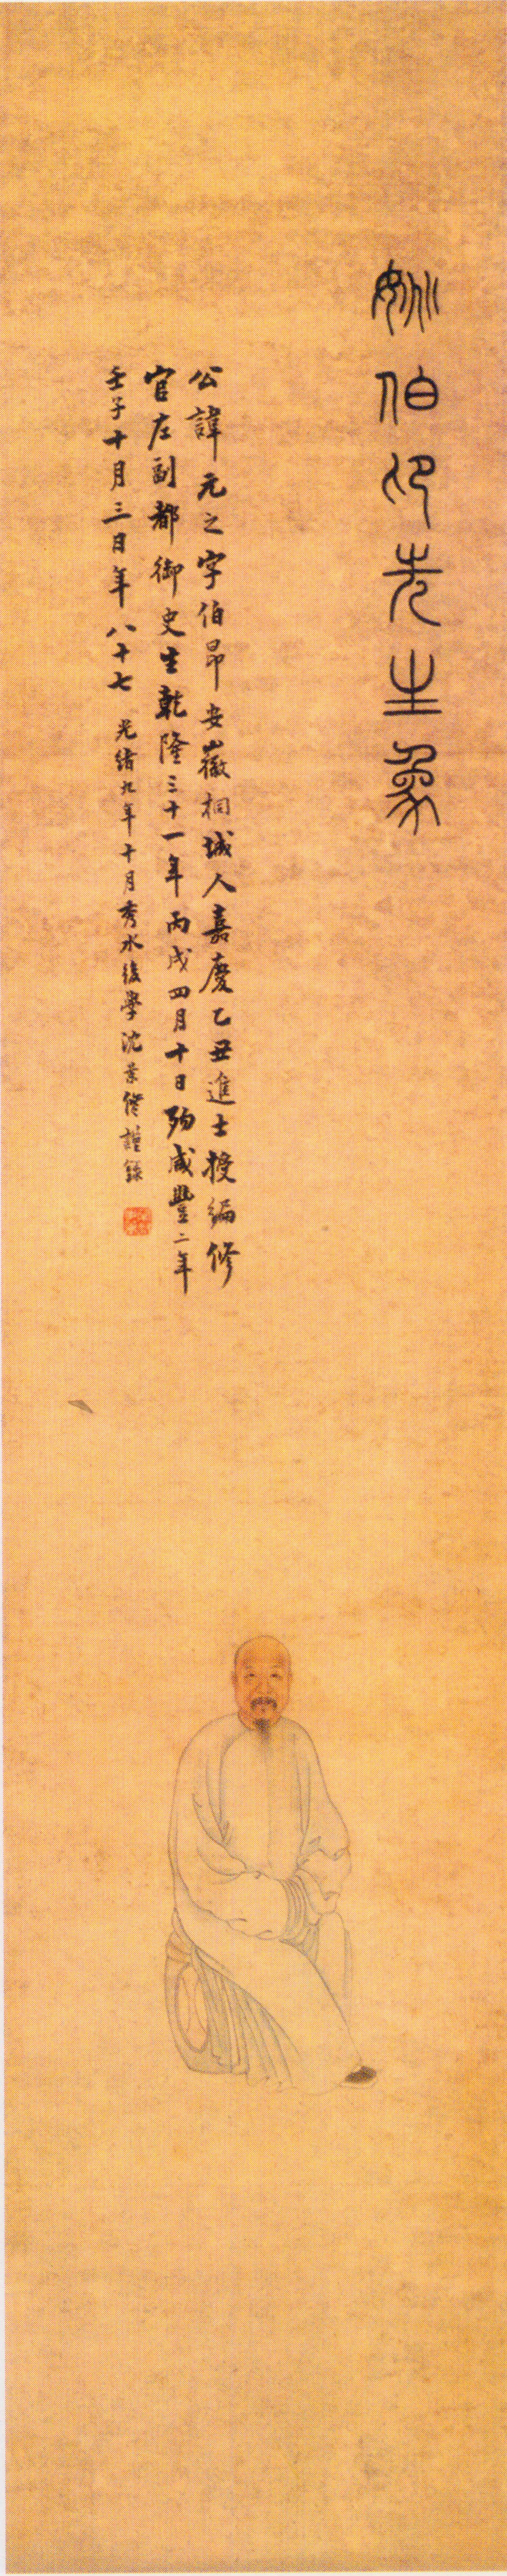 姚伯卬先生象
公諱元之字伯昂安徽桐城人嘉慶乙丑進士授編修
官左副都御史生乾隆三十一年丙戌四月十日歾咸豐二年
壬子十月三日年八十七 光緒九年十月秀水後學沈景修謹錄